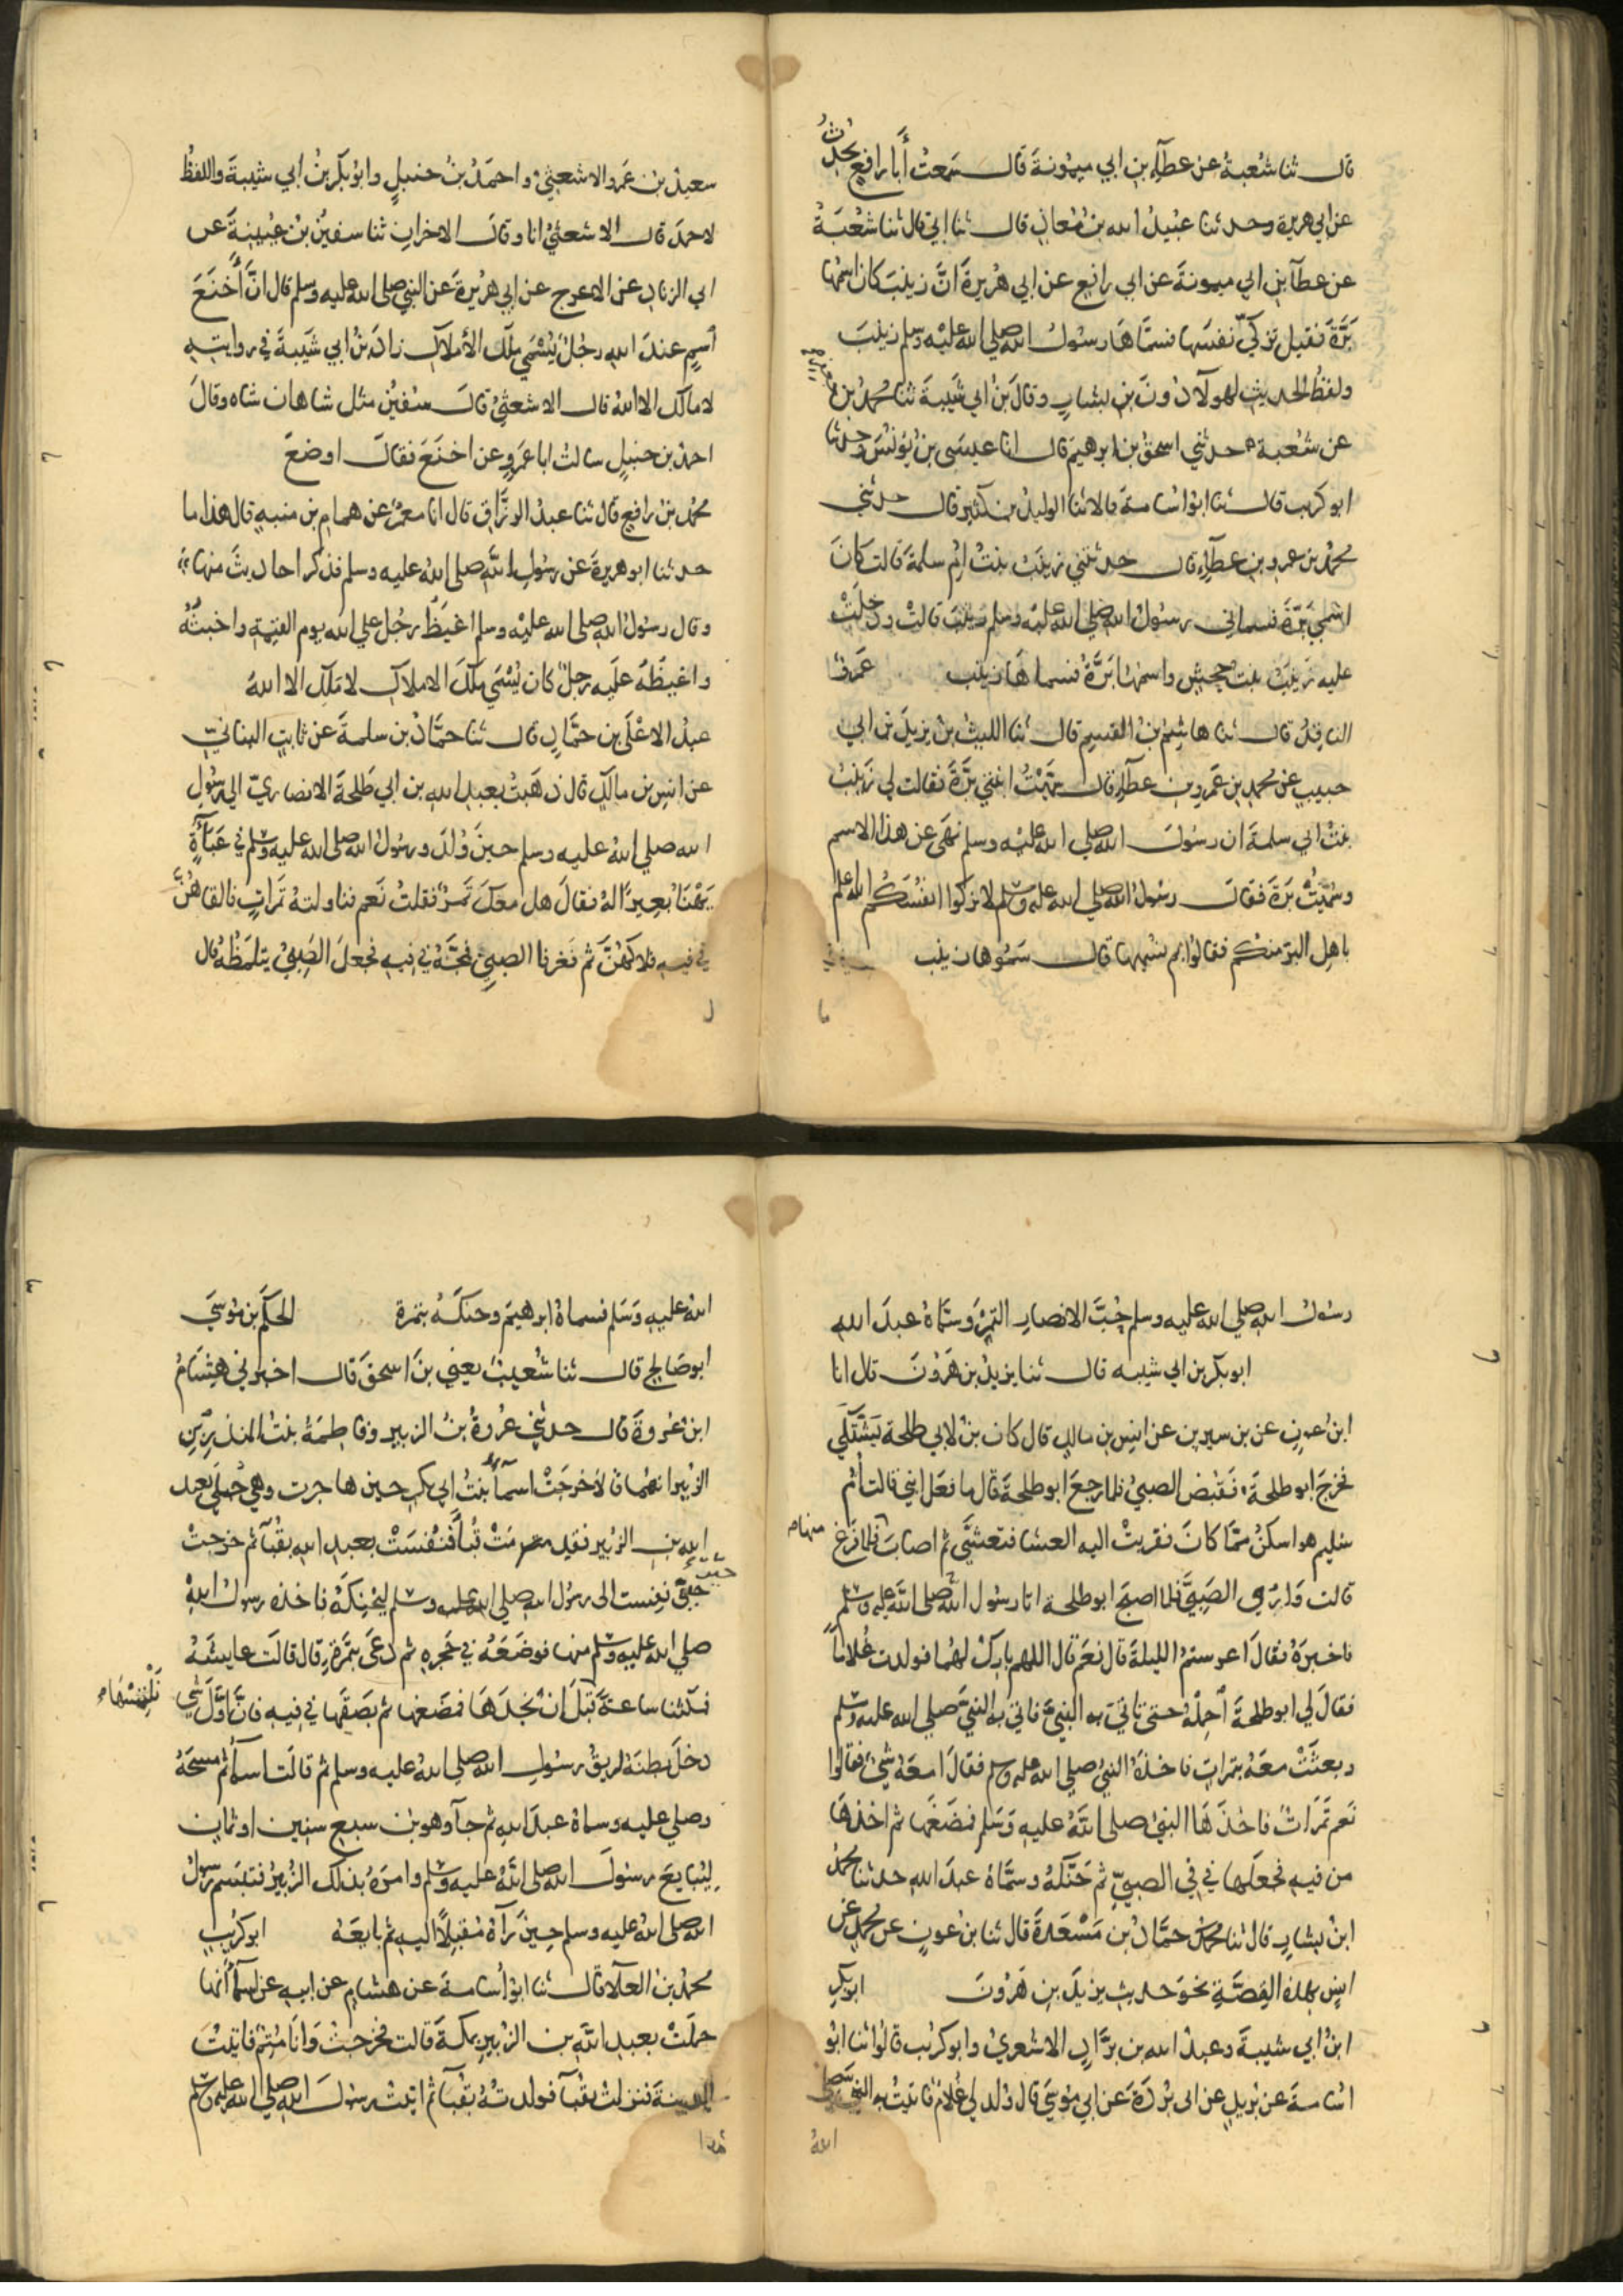 قال ثنا شعبة عن عطاء بن ابي ميمونة قال سمعت أبا رافع يحدث
عن ابي هريرة وحدثنا عبيد الله بن معاذ قال ثنا ابي قال ثنا شعبة
عن عطاء بن ابي ميمونة عن ابي رافع عن ابي هريرة ان زينب كان اسمها
برة فقيل تزكي نفسها فسماها رسول الله صلى الله عليه وسلم زينب
ولفظ الحديث لهولآ دون بن بشار وقال بن ابي شيبة ثنا محمد بن جعفر
عن شعبة حدثني اسحق بن ابرهيم قال انا عيسى بن يونس وحدثنا
ابو كريب قال ثنا ابو اسامة قالا ثنا الوليد بن كثير قال حدثني
محمد بن عمرو بن عطاء قال حدثتني زينب بنت ام سلمة قالت كان
اسمي برة فسماني رسول الله صلى الله عليه وسلم زينب قالت ودخلت
عليه زينب بنت جحش واسمها برة فسماها زينب عمرو
الناقد قال ثنا هاشم بن القسم قال ثنا الليث بن يزيد بن ابي
حبيب عن محمد بن عمرو بن عطاء قال سميت ابنتي برة فقالت لي زينب
بنت ابي سلمة ان رسول الله صلى الله عليه وسلم نهى عن هذا الاسم
وسميت برة فقال رسول الله صلى الله عليه وسلم لا تزكوا انفسكم الله اعلم
باهل البر منكم فقالوا بم نسميها قال سموها زينب
سعيد بن عمرو الاشعثي واحمد بن حنبل وابو بكر بن ابي شيبة واللفظ
لاحمد قال الاشعثي انا وقال الاخران ثنا سفين بن عيينة عن
ابي الزناد عن الاعرج عن ابي هريرة عن النبي صلى الله عليه وسلم قال ان أخنع
اسم عند الله رجل يسمى ملك الأملاك زاد بن ابي شيبة في روايته
لا مالك الا الله قال الاشعثي قال سفين مثل شاهان شاه وقال
احمد بن حنبل سالت ابا عمرو عن اخنع فقال اوضع
محمد بن رافع قال ثنا عبد الرزاق قال انا معمر عن همام بن منبه قال هذا ما
حدثنا ابو هريرة عن رسول الله صلى الله عليه وسلم فذكر احاديث منها
وقال رسول الله صلى الله عليه وسلم اغيظ رجل على الله يوم القيمة واخبثه
واغيظه عليه رجل كان يسمى ملك الاملاك لا ملك الا الله
عبد الاعلى بن حماد قال ثنا حماد بن سلمة عن ثابت البناني
عن انس بن مالك قال ذهبت بعبد الله بن ابي طلحة الانصاري الى رسول
الله صلى الله عليه وسلم حين ولد ورسول الله صلى الله عليه وسلم في عباءة
يهنأ بعيرا له فقال هل معك تمر فقلت نعم فناولته تمرات فالقاهن
في فيه فلاكهن ثم فغر فا الصبي فمجه في فيه فجعل الصبي يتلمظه قال
رسول الله صلى الله عليه وسلم حب الانصار التمر وسماه عبد الله
ابو بكر بن ابي شيبه قال ثنا يزيد بن هرون قال انا
ابن عون عن بن سيرين عن انس بن مالك قال كان بن لابي طلحة يشتكي
فخرج ابو طلحة فقبض الصبي فلما رجع ابو طلحة قال ما فعل ابني قالت أم
سليم هو اسكن مما كان فقربت اليه العشا فتعشى ثم اصاب فلما فرغ
منها
قالت واروا الصبي فلما اصبح ابو طلحة اتا رسول الله صلى الله عليه وسلم
فاخبره فقال اعرستم الليلة قال نعم قال اللهم بارك لهما فولدت غلاما
فقال لي ابو طلحة احمله حتى تاتي به النبي فاتى به النبي صلى الله عليه وسلم
وبعثت معه بتمرات فاخذه النبي صلى الله عليه وسلم فقال امعه شي فقالوا
نعم تمرات فاخذها النبي صلى الله عليه وسلم فمضغها ثم اخذها
من فيه فجعلها في في الصبي ثم حنكه وسماه عبد الله حدثنا محمد
ابن بشار قال ثنا حماد بن مسعدة قال ثنا بن عون عن محمد عن
انس بهذه القصة نحو حديث يزيد بن هرون ابو بكر
ابن ابي شيبة وعبد الله بن براد الاشعري وابو كريب قالوا ثنا ابو
اسامة عن بريد عن ابى بردة عن ابي موسى قال ولد لي غلام فاتيت به النبي صلى
الله
الله عليه وسلم فسماه ابرهيم وحنكه بتمرة الحكم بن موسى
ابو صالح قال ثنا شعيب يعني بن اسحق قال اخبرني هشام
ابن عروة قال حدثني عروة بن الزبير وفاطمة بنت المنذر بن
الزبير انهما قالا خرجت اسمآ بنت ابي بكر حين هاجرت وهي حبلى بعبد
الله بن الزبير فقدمت قبأ فنفست بعبد الله بقبآ ثم خرجت
حين نفست الى رسول الله صلى الله عليه وسلم ليحنكه فاخذه رسول الله
صلى الله عليه وسلم منها فوضعه في حجره ثم دعى بتمرة قال قالت عايشة
فمكثنا ساعة قبل ان نجدها فمضغها ثم بصقها في فيه فان اول شي
نلتمسها
دخل بطنه لريق رسول الله صلى الله عليه وسلم ثم قالت اسمآ ثم مسحه
وصلى عليه وسماه عبد الله ثم جآ وهو بن سبع سنين او ثمان
ليبايع رسول الله صلى الله عليه وسلم وامره بذلك الزبير فتبسم رسول
الله صلى الله عليه وسلم حين رآه مقبلا اليه ثم بايعه ابو كريب
محمد بن العلآ قال ثنا ابو أسامة عن هشام عن ابيه عن اسمآ أنها
حملت بعبد الله بن الزبير بمكة قالت فخرجت وانا متم فاتيت
المدينة فنزلت بقبآ فولدته بقبآ ثم اتيت رسول الله صلى الله عليه وسلم